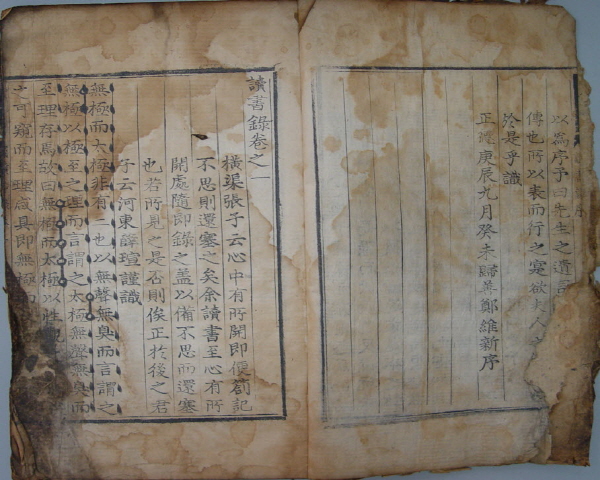 以為序予曰先生之遺
傳也所以表而行之寔欲夫人之
於是乎識
正德庚辰九月癸未歸善鄭維新序
讀書錄卷之一
橫渠張子云心中有所開即便劄記
不思則還塞之矣余讀書至心有所
開處隨即錄之盖以備不思而還塞
也若所見之是否則俟正於後之君
子云河東薛瑄謹識
無極而太極非有二也以無聲無臭而言謂之
無極以極至之理而言謂之太極無聲無臭而
至理存焉故曰無極而太極以性
之可窺而至理咸具即無極而